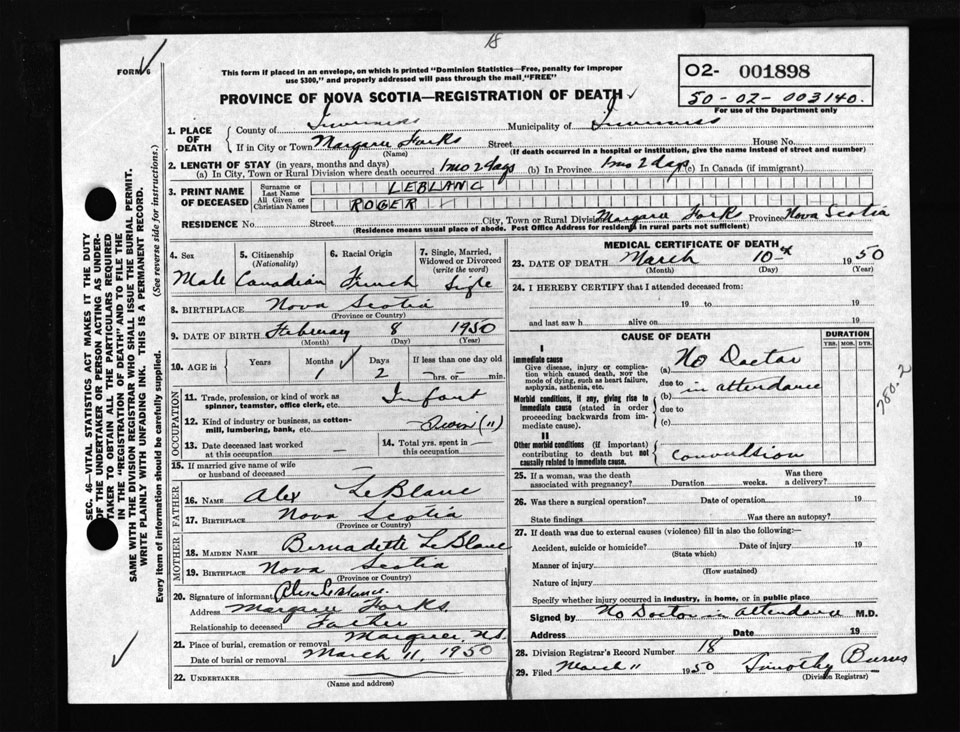 18
FORM 6
This form if placed in an envelope, on which is printed "Dominion Statistics—Free, penalty for improper
use $300," and properly addressed will pass through the mail "FREE"
PROVINCE OF NOVA SCOTIA—REGISTRATION OF DEATH
02- 001898
50-02-003140.
For use of the Department only
SEC. 46—VITAL STATISTICS ACT MAKES IT THE DUTY
OF THE UNDERTAKER OR PERSON ACTING AS UNDER-
TAKER TO OBTAIN ALL THE PARTICULARS REQUIRED
IN THE "REGISTRATION OF DEATH" AND TO FILE THE
SAME WITH THE DIVISION REGISTRAR WHO SHALL ISSUE THE BURIAL PERMIT.
WRITE PLAINLY WITH UNFADING INK. THIS IS A PERMANENT RECORD.
Every item of information should be carefully supplied. (See reverse side for instructions.)
1. PLACE OF DEATH
County of Inverness Municipality of Inverness
If in City or Town Margaree Forks Street House No.
(Name) (If death occurred in a hospital or institution, give the name instead of street and number)
2. LENGTH OF STAY (in years, months and days)
(a) In City, Town or Rural Division where death occurred 1 mo 2 days (b) In Province 1 mo 2 days (c) In Canada (if immigrant)
3. PRINT NAME OF DECEASED
Surname or Last Name LEBLANC
All Given or Christian Names ROGER
RESIDENCE No. Street City, Town or Rural Division Margaree Forks Province Nova Scotia
(Residence means usual place of abode. Post Office Address for residents in rural parts not sufficient)
4. Sex 5. Citizenship (Nationality) 6. Racial Origin 7. Single, Married, Widowed or Divorced (write the word)
Male Canadian French Sigle
8. BIRTHPLACE Nova Scotia
(Province or Country)
9. DATE OF BIRTH February 8 1950
(Month) (Day) (Year)
10. AGE in Years Months Days If less than one day old
1 2 hrs. or min.
OCCUPATION
11. Trade, profession, or kind of work as spinner, teamster, office clerk, etc. Infant
12. Kind of industry or business, as cotten-mill, lumbering, bank, etc. (")
13. Date deceased last worked at this occupation
14. Total yrs. spent in this occupation
15. If married give name of wife or husband of deceased
FATHER
16. NAME Alex LeBlanc
17. BIRTHPLACE Nova Scotia
(Province or Country)
MOTHER
18. MAIDEN NAME Bernadette LeBlanc
19. BIRTHPLACE Nova Scotia
(Province or Country)
20. Signature of informant Alex LeBlanc
Address Margaree Forks
Relationship to deceased Father
21. Place of burial, cremation or removal Margaree, N.S.
Date of burial or removal March 11, 1950
22. UNDERTAKER
(Name and address)
MEDICAL CERTIFICATE OF DEATH
23. DATE OF DEATH March 10th 1950
(Month) (Day) (Year)
24. I HEREBY CERTIFY that I attended deceased from:
19 to 19
and last saw h alive on 19
CAUSE OF DEATH DURATION
YRS. MOS. DYS.
I
Immediate cause
Give disease, injury or complication which caused death, not the mode of dying, such as heart failure, asphyxia, asthenia, etc.
(a) No Doctor
due to
Morbid conditions, if any, giving rise to immediate cause (stated in order proceeding backwards from immediate cause).
(b) in attendance
due to
(c)
II
Other morbid conditions (if important) contributing to death but not causally related to immediate cause.
Convulsion
780.2
25. If a woman, was the death associated with pregnancy? Duration weeks. Was there a delivery?
26. Was there a surgical operation? Date of operation 19
State findings Was there an autopsy?
27. If death was due to external causes (violence) fill in also the following:—
Accident, suicide or homicide? Date of injury 19
(State which)
Manner of injury
(How sustained)
Nature of injury
Specify whether injury occurred in industry, in home, or in public place
Signed by No Doctor in attendance M.D.
Address Date 19
28. Division Registrar's Record Number 18
29. Filed March 11 1950 Timothy Burns
(Division Registrar)